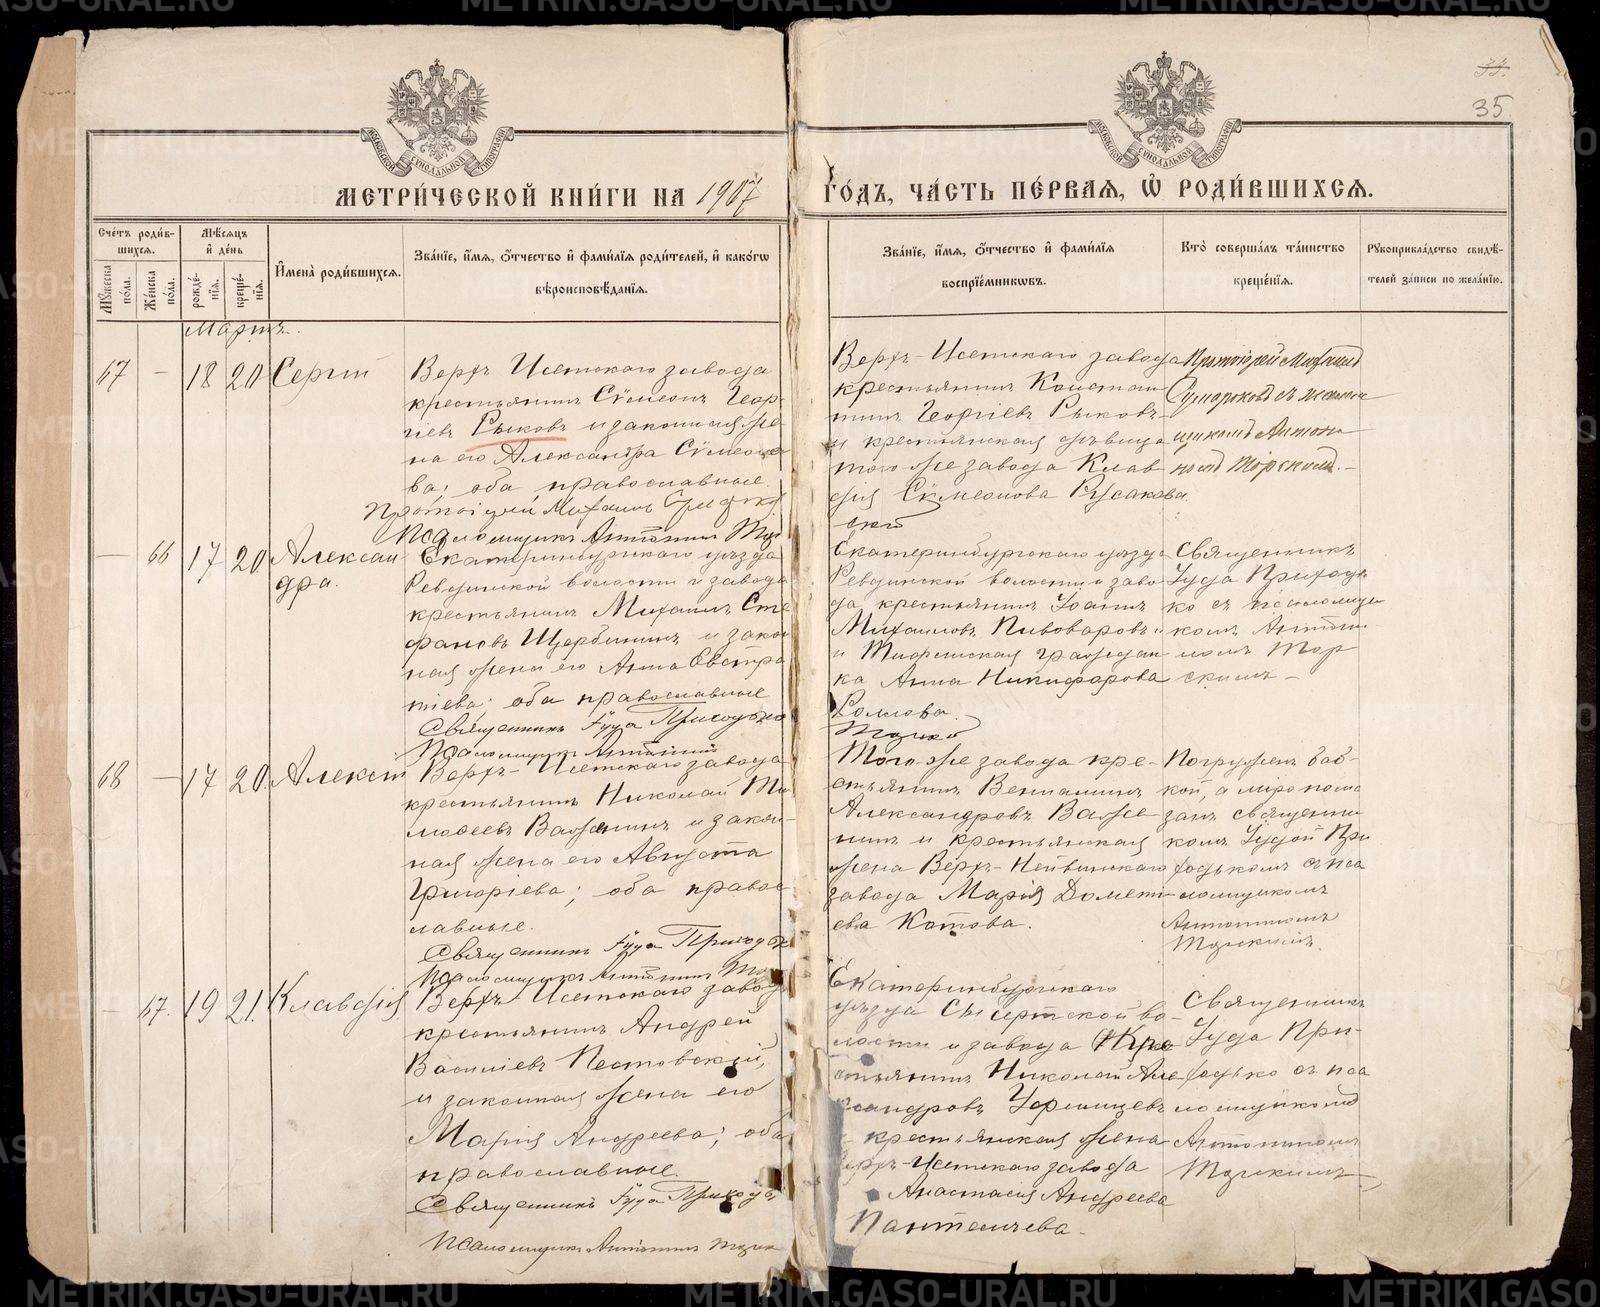 33.
35
МЕТРИ́ЧЕСКОЙ КНИ́ГИ НА 1907
ГО́ДЪ, ЧА́СТЬ ПЕ́РВАЯ, Ѡ҆ РОДИ́ВШИХСѦ.
Сче́тъ роди́в-
шихсѧ.
Мꙋ́жеска по́ла.
Же́нска по́ла.
Мѣ́сѧцъ
и҆ де́нь
рожде́-
нїѧ.
креще́-
нїѧ.
И҆мена̀ роди́вшихсѧ.
Зва́нїе, и҆́мѧ, ѻ҆́тчество и҆ фами́лїѧ роди́телей, и҆ како́гѡ
вѣроисповѣ́данїѧ.
Зва́нїе, и҆́мѧ, ѻ҆́тчество и҆ фами́лїѧ
воспрїе́мникѡвъ.
Кто̀ соверша́лъ та́инство
креще́нїѧ.
Рꙋкоприкла́дство свидѣ́-
телей за́писи по жела́нїю.
Мартъ.
67 — 18 20 Сергій
Верхъ-Исетскаго завода
крестьянинъ Сѵмеонъ Геор-
гіевъ Рыковъ и законная же-
на его Александра Сѵмеоно-
ва; оба православные.
Протоіерей Михаилъ
Псаломщикъ Антонинъ
Верхъ-Исетскаго завода
крестьянинъ Констан-
тинъ Георгіевъ Рыковъ
и крестьянская дѣвица
того же завода Клав-
дія Сѵмеонова Русакова
Протоіерей Михаилъ
Сумароковъ съ псалом-
щикомъ Антони-
номъ Торскимъ.
— 66 17 20 Алексан-
дра.
Екатеринбургскаго уѣзда
Ревдинской волости и завода
крестьянинъ Михаилъ Сте-
фановъ Щербининъ и закон-
ная жена его Анна Евстра-
тіева; оба православные
Священникъ Іуда Приходько
Псаломщикъ Антонинъ
Екатеринбургскаго уѣзда
Ревдинской волости и заво-
да крестьянинъ Іоаннъ
Михаиловъ Пивоваровъ
и граждан-
ка Анна Никифорова
Священникъ
Іуда Приходь-
ко съ псаломщи-
комъ Антони-
номъ Тор-
скимъ
68 — 17 20 Алексій
Верхъ-Исетскаго завода
крестьянинъ Николай Ти-
мофеевъ Важенинъ и закон-
ная жена его Августа
Григоріева; оба правос-
лавные.
Священникъ Іуда Приходько
Псаломщикъ Антонинъ
Того-же завода кре-
стьянинъ Веніаминъ
Александровъ Важе-
нинъ и крестьянская
жена Верхъ-Нейвинскаго
завода Марія Домети-
ева Котова.
Погруженъ баб-
кой, а мvропома-
занъ священни-
комъ Іудой При-
ходькомъ съ пса-
ломщикомъ
Антониномъ
Торскимъ.
— 67. 19 21. Клавдія
Верхъ-Исетскаго завода
крестьянинъ Андрей
Васильевъ Пестовскій,
и законная жена его
Марія Андреева; оба
православные.
Священникъ Іуда Приходько
Псаломщикъ Антонинъ
Екатеринбургскаго
уѣзда Сысертской во-
лости и завода Кре-
стьянинъ Николай Але-
ксандровъ
крестьянская жена
Верхъ-Исетскаго завода
Анастасія Андреева
Пантелѣева.
Священникъ
Іуда При-
ходько съ пса-
ломщикомъ
Антониномъ
Торскимъ
METRIKI.GASO-URAL.RU